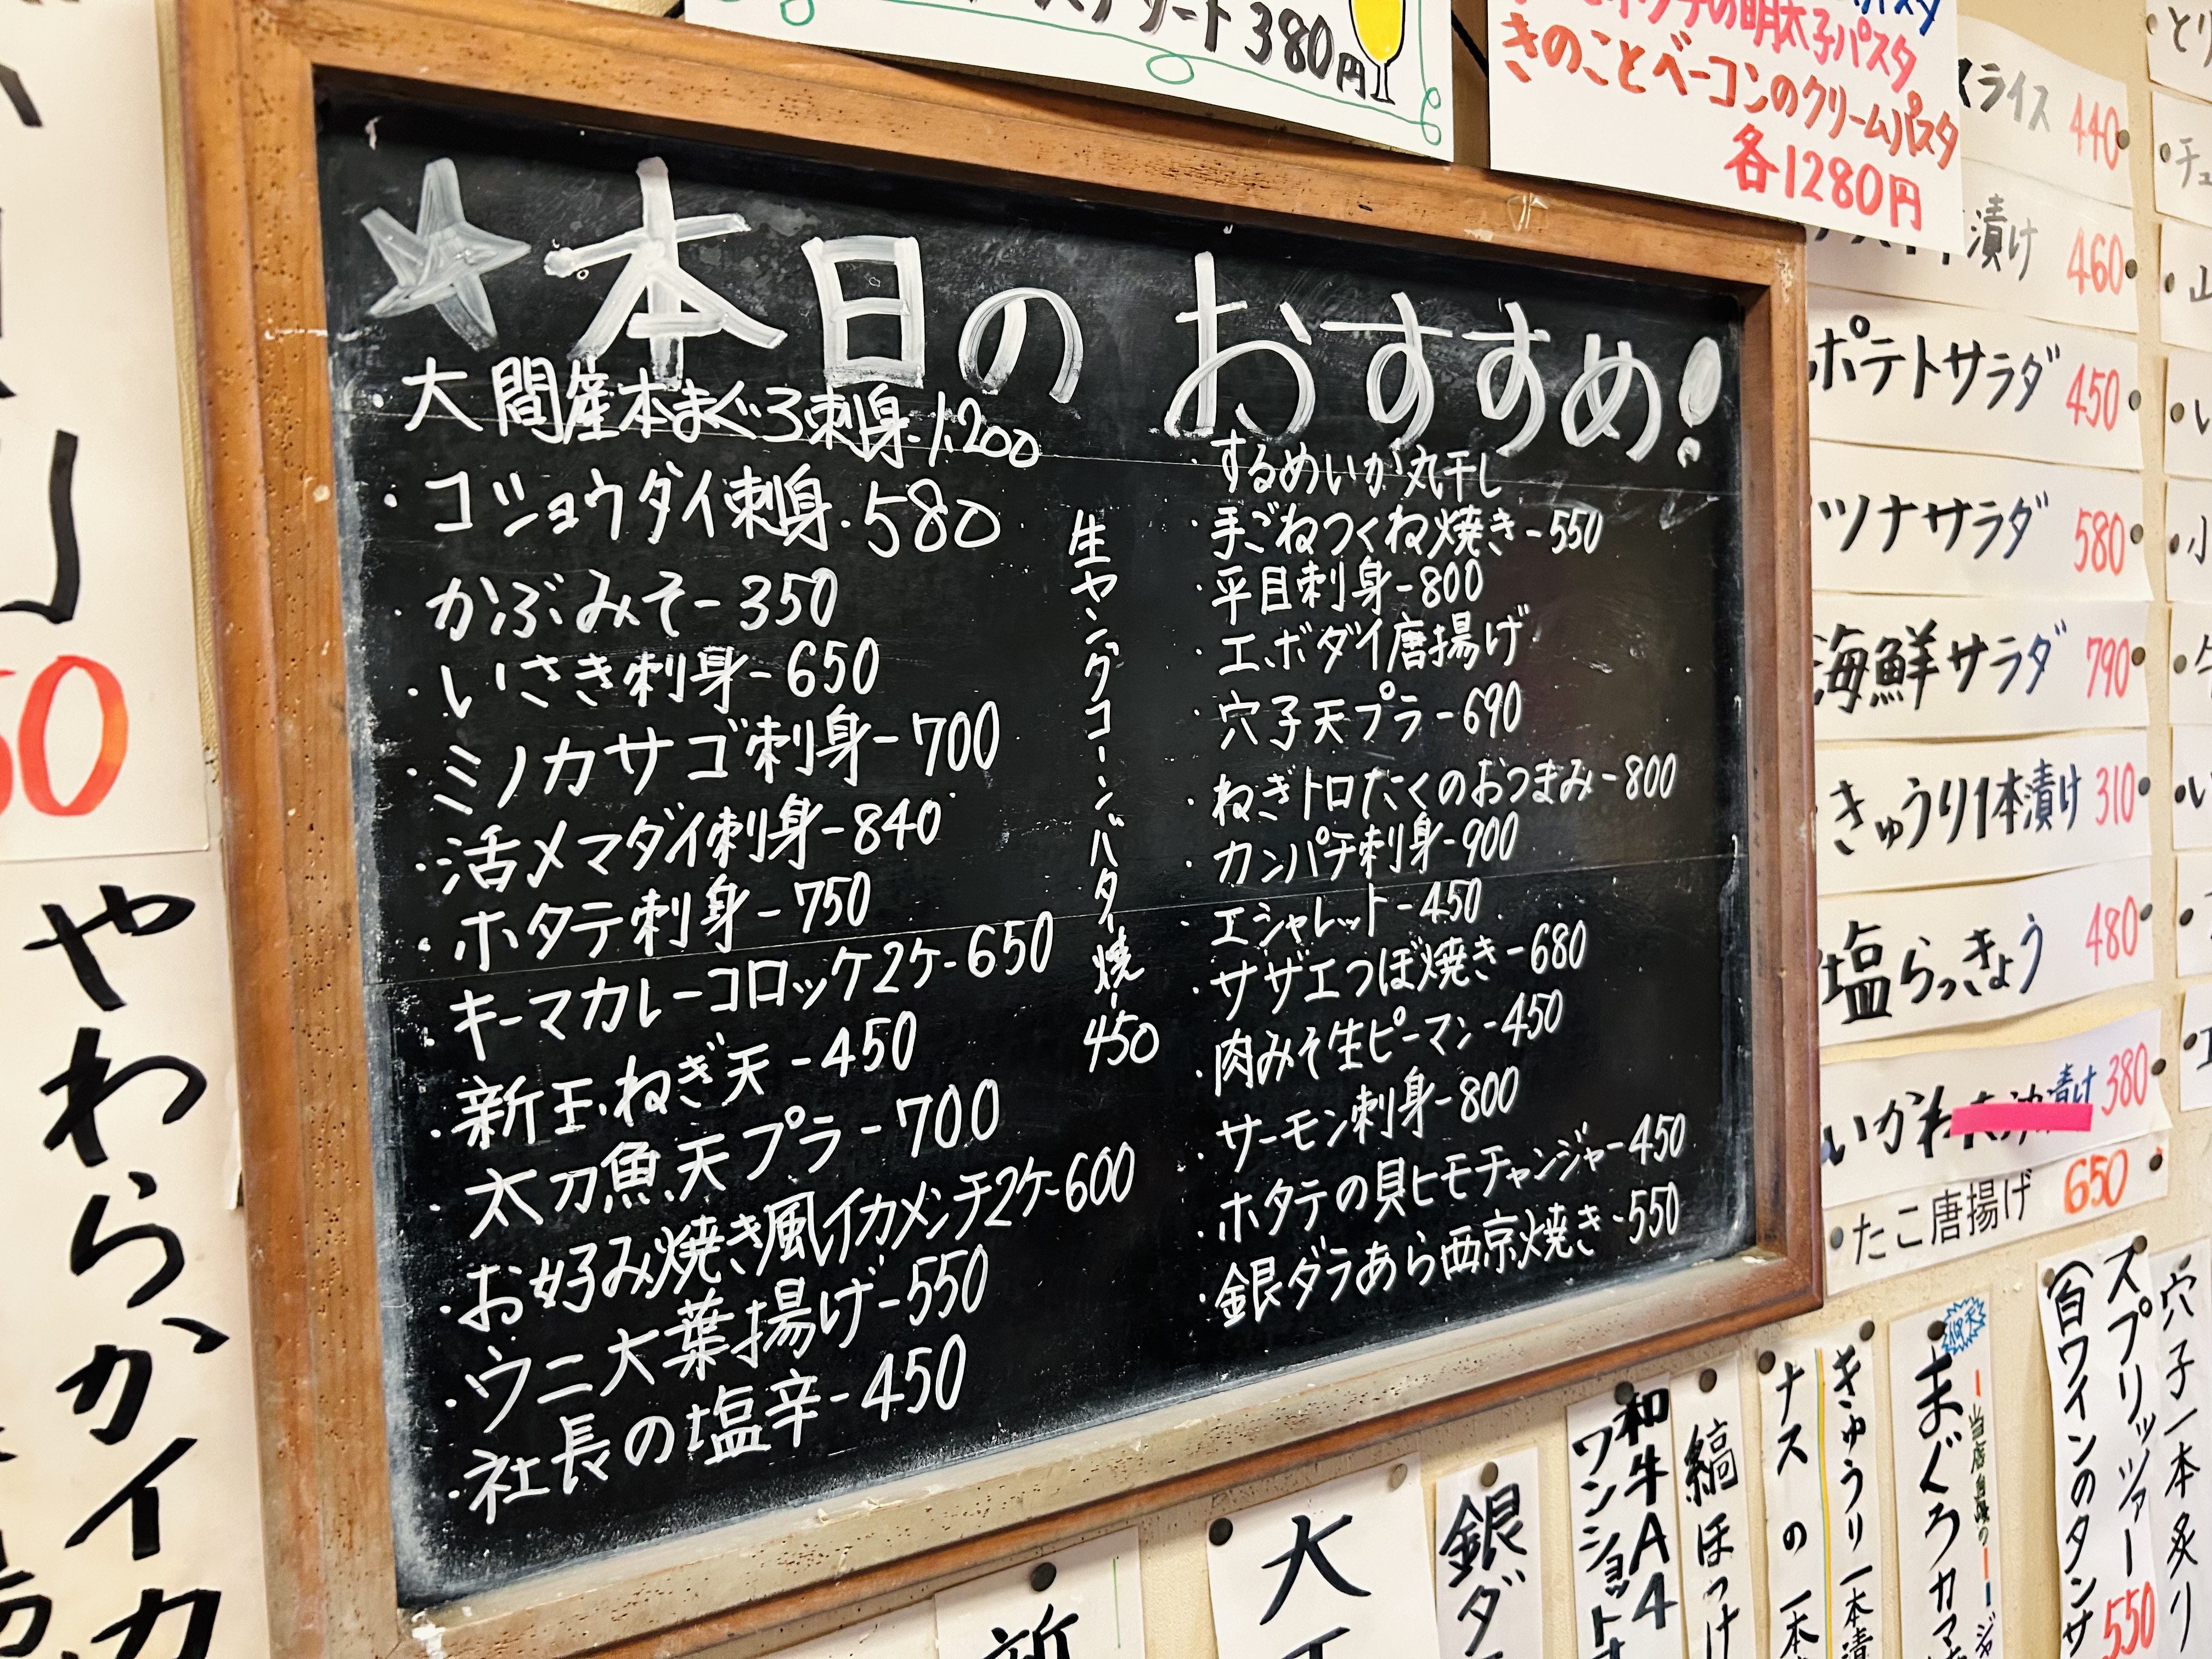 380円
明太子パスタ
きのことベーコンのクリームパスタ
各1280円
★本日のおすすめ!
大間産本まぐろ刺身-1,200
・コショウダイ刺身-580
・かぶみそ-350
・いさき刺身-650
・ミノカサゴ刺身-700
・活〆マダイ刺身-840
・ホタテ刺身-750
・キーマカレーコロッケ2ケ-650
・新玉ねぎ天-450
・太刀魚天プラ-700
・お好み焼き風イカメンチ2ケ-600
・ウニ大葉揚げ-550
・社長の塩辛-450
生ヤングコーンバター焼-450
・するめいか丸干し
・手ごねつくね焼き-550
・平目刺身-800
・エボダイ唐揚げ
・穴子天プラ-690
・ねぎトロたくのおつまみ-800
・カンパチ刺身-900
・エシャレット-450
・サザエつぼ焼き-680
・肉みそ生ピーマン-450
・サーモン刺身-800
・ホタテの貝ヒモチャンジャー-450
・銀ダラあら西京焼き-550
スライス 440
漬け 460
ポテトサラダ 450
ツナサラダ 580
海鮮サラダ 790
きゅうり1本漬け 310
塩らっきょう 480
いかわ 漬け 380
たこ唐揚げ 650
やわらかイカ
新
大
銀ダ
和牛A4
ワンショット
縞ほっけ
ナスの一本
きゅうり一本漬
当店自慢の
まぐろカマ
スプリッツァー 550
(白ワインのタンサ
穴子一本炙り